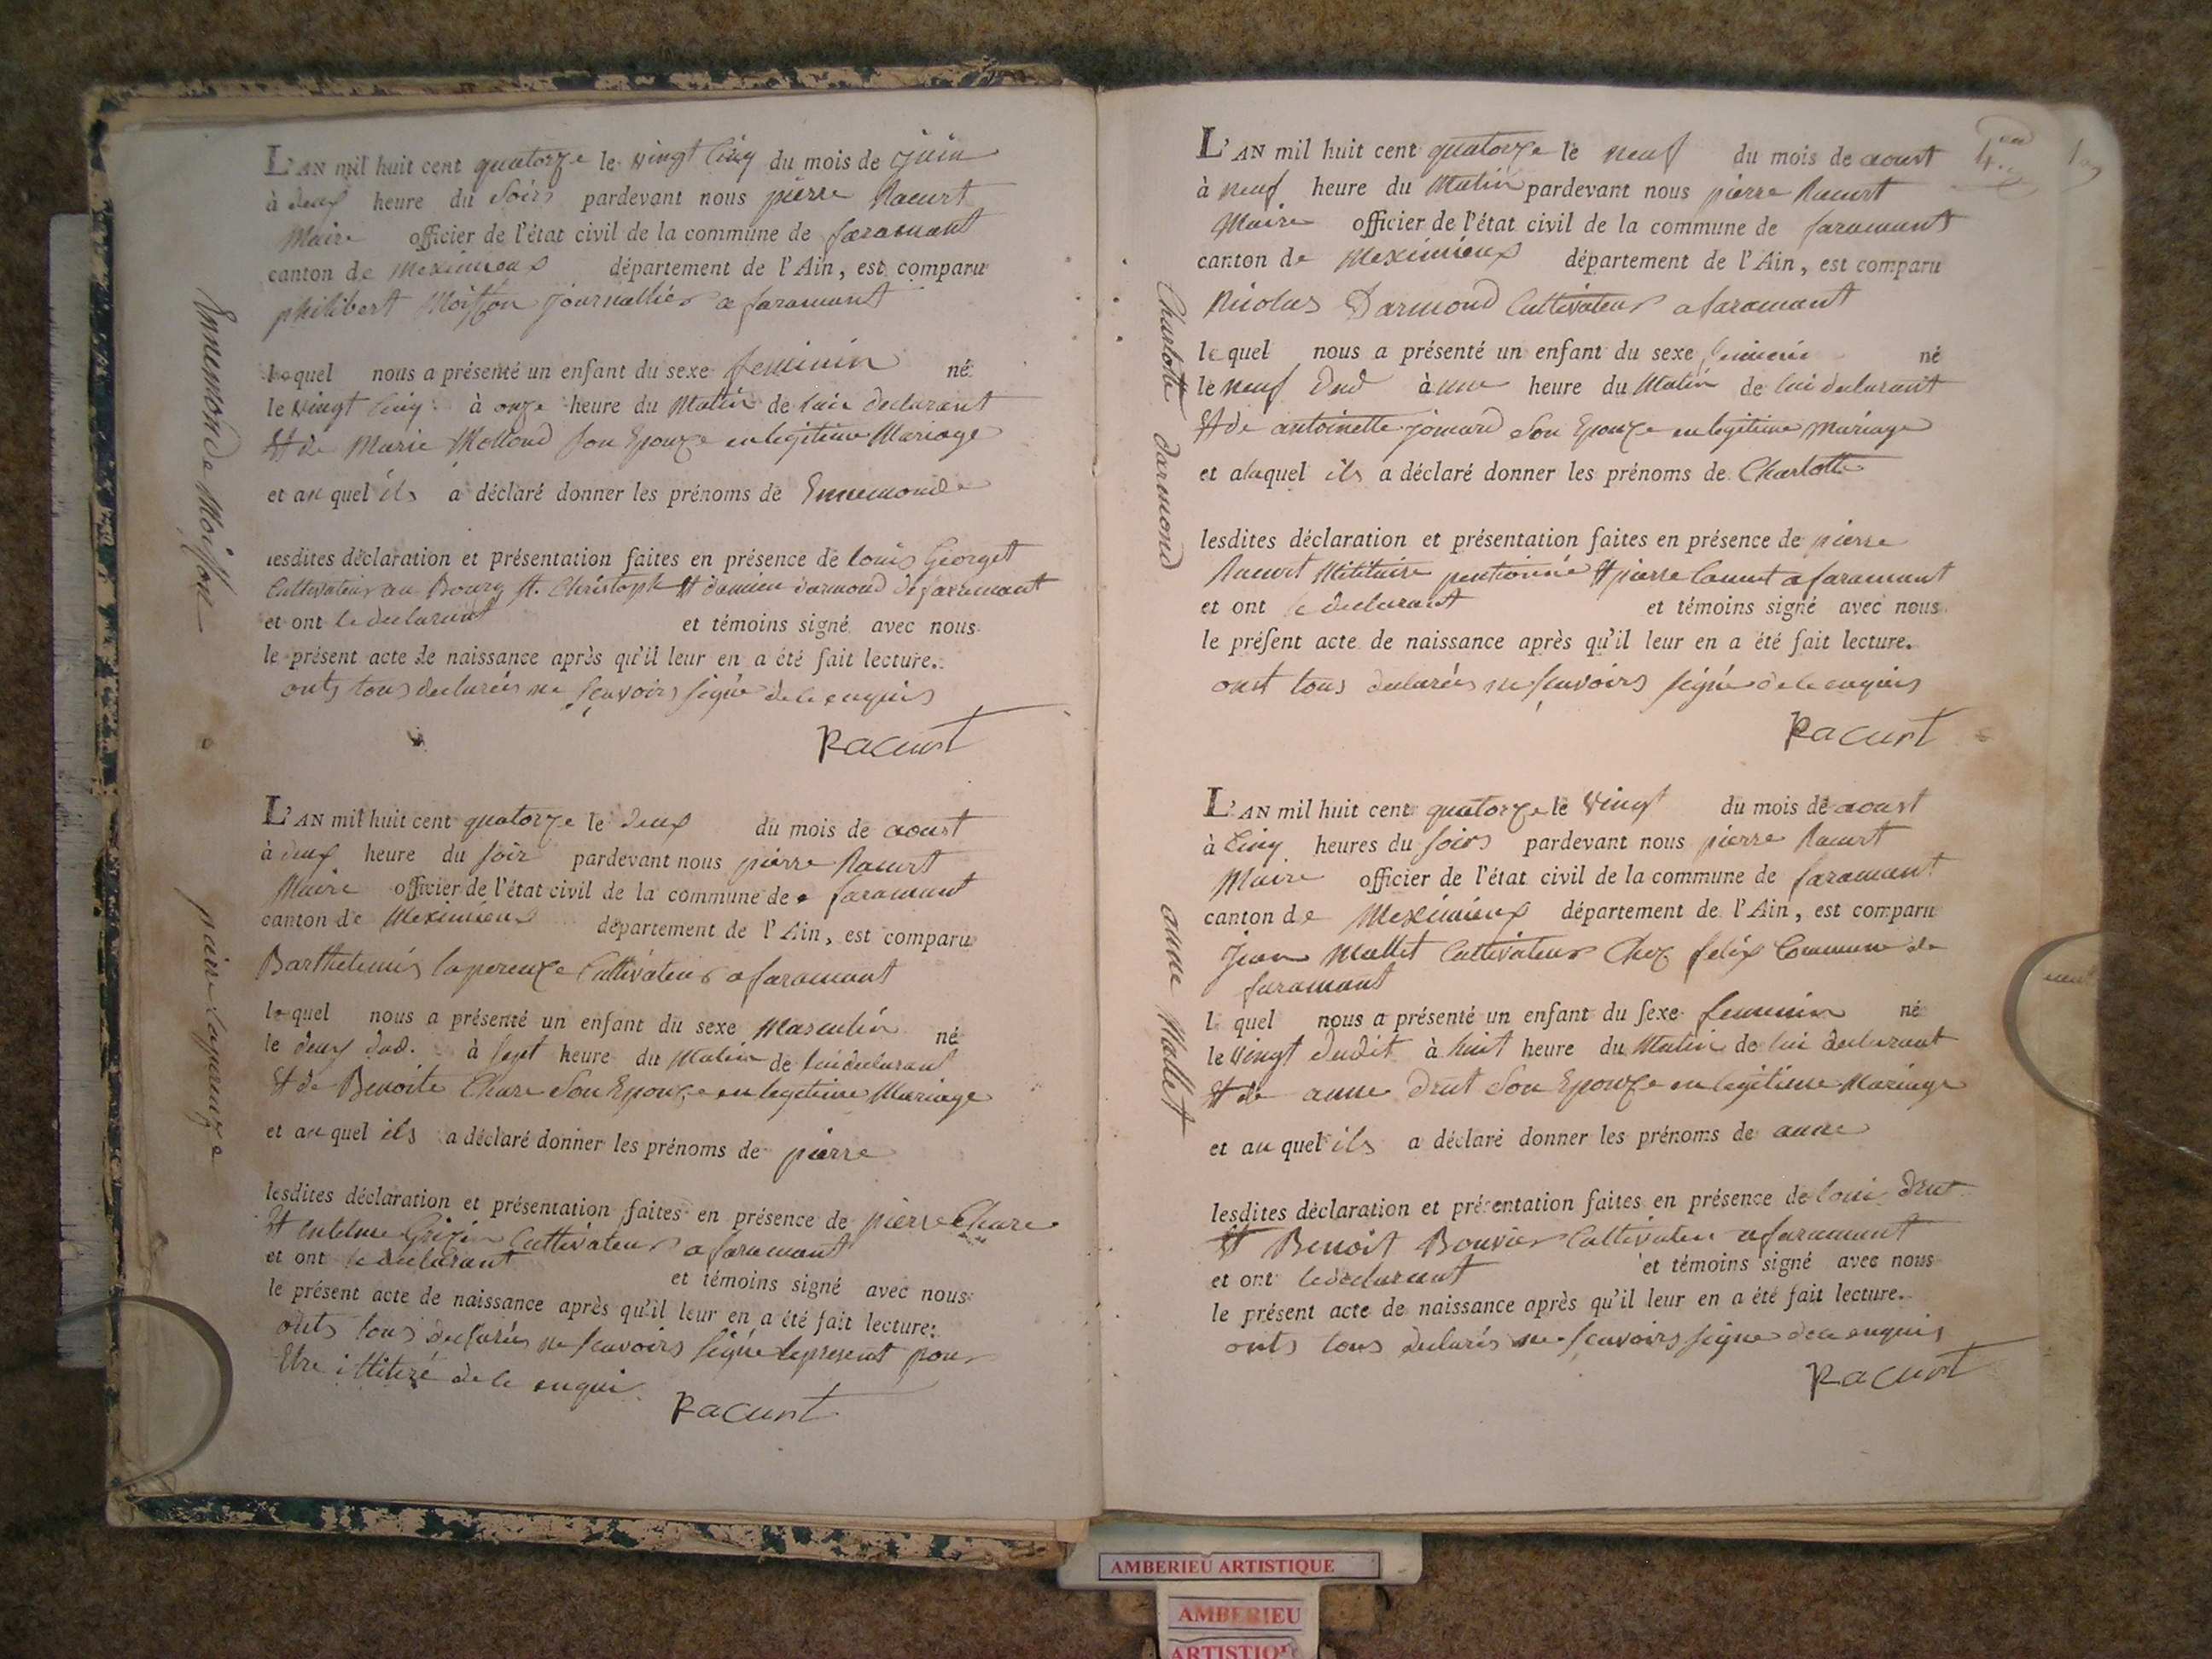 L'AN mil huit cent quatorze le vingt cinq du mois de juin
à deux heure du soirs pardevant nous pierre Racurt
Maire officier de l'état civil de la commune de faramant
canton de Meximieux département de l'Ain, est comparu
philibert Moisson journallier a faramant
lequel nous a présenté un enfant du sexe feminin né
le vingt cinq à onze heure du Matin de lui declarant
Et de Marie Mollond son Epouze en legitime Mariage
et au quel ils a déclaré donner les prénoms de Ennemonde
lesdites déclaration et présentation faites en présence de louis Georget
Cultivateur au Bourg St. Christoph Et damien darmond de faramant
et ont le declarant et témoins signé avec nous
le présent acte de naissance après qu'il leur en a été fait lecture.
onts tous declarés ne scavoirs signé de ce enquis
Racurt
Ennemonde Moisson
L'AN mil huit cent quatorze le deux du mois de aoust
à deux heure du soir pardevant nous pierre Racurt
Maire officier de l'état civil de la commune de faramant
canton de Meximieux département de l'Ain, est comparu
Barthelemis laperouze Cultivateur a faramant
lequel nous a présenté un enfant du sexe Masculin né
le deux dud. à sept heure du Matin de lui declarant
Et de Benoite Chare son Epouze en legitime Mariage
et au quel ils a déclaré donner les prénoms de pierre
lesdites déclaration et présentation faites en présence de pierre Chare
Et Cultivateur a faramant
et ont le declarant et témoins signé avec nous
le présent acte de naissance après qu'il leur en a été fait lecture:
onts tous declarés ne scavoirs signé le present pour
Etre illitiré de ce enqui
Racurt
L'AN mil huit cent quatorze le neuf du mois de aoust
à neuf heure du Matin pardevant nous pierre Racurt
Maire officier de l'état civil de la commune de faramant
canton de Meximieux département de l'Ain, est comparu
Nicolas Darmond Cultivateur a faramant
lequel nous a présenté un enfant du sexe feminin né
le neuf dud à une heure du Matin de lui declarant
Et de antoinette jomard son Epouze en legitime Mariage
et alaquel ils a déclaré donner les prénoms de Charlotte
lesdites déclaration et présentation faites en présence de pierre
Racurt Militaire pentionné Et pierre a faramant
et ont le declarant et témoins signé avec nous
le présent acte de naissance après qu'il leur en a été fait lecture.
ont tous declarés ne scavoirs signé de ce enquis
Racurt
Charlotte darmond
L'AN mil huit cent quatorze le vingt du mois de aoust
à Cinq heures du soirs pardevant nous pierre Racurt
Maire officier de l'état civil de la commune de faramant
canton de Meximieux département de l'Ain, est comparu
Jean Mallet Cultivateur Chez felix Commune de
faramant
le quel nous a présenté un enfant du sexe feminin né
le vingt dudit à huit heure du Matin de lui declarant
Et de anne drut son Epouze en legitime Mariage
et au quel ils a déclaré donner les prénoms de anne
lesdites déclaration et présentation faites en présence de loui drut
Et Benoit Bouvier Cultivateur a faramant
et ont le declarant et témoins signé avec nous
le présent acte de naissance après qu'il leur en a été fait lecture.
onts tous declarés ne scavoirs signé de ce enquis
Racurt
anne Mallet
AMBERIEU ARTISTIQUE
AMBERIEU